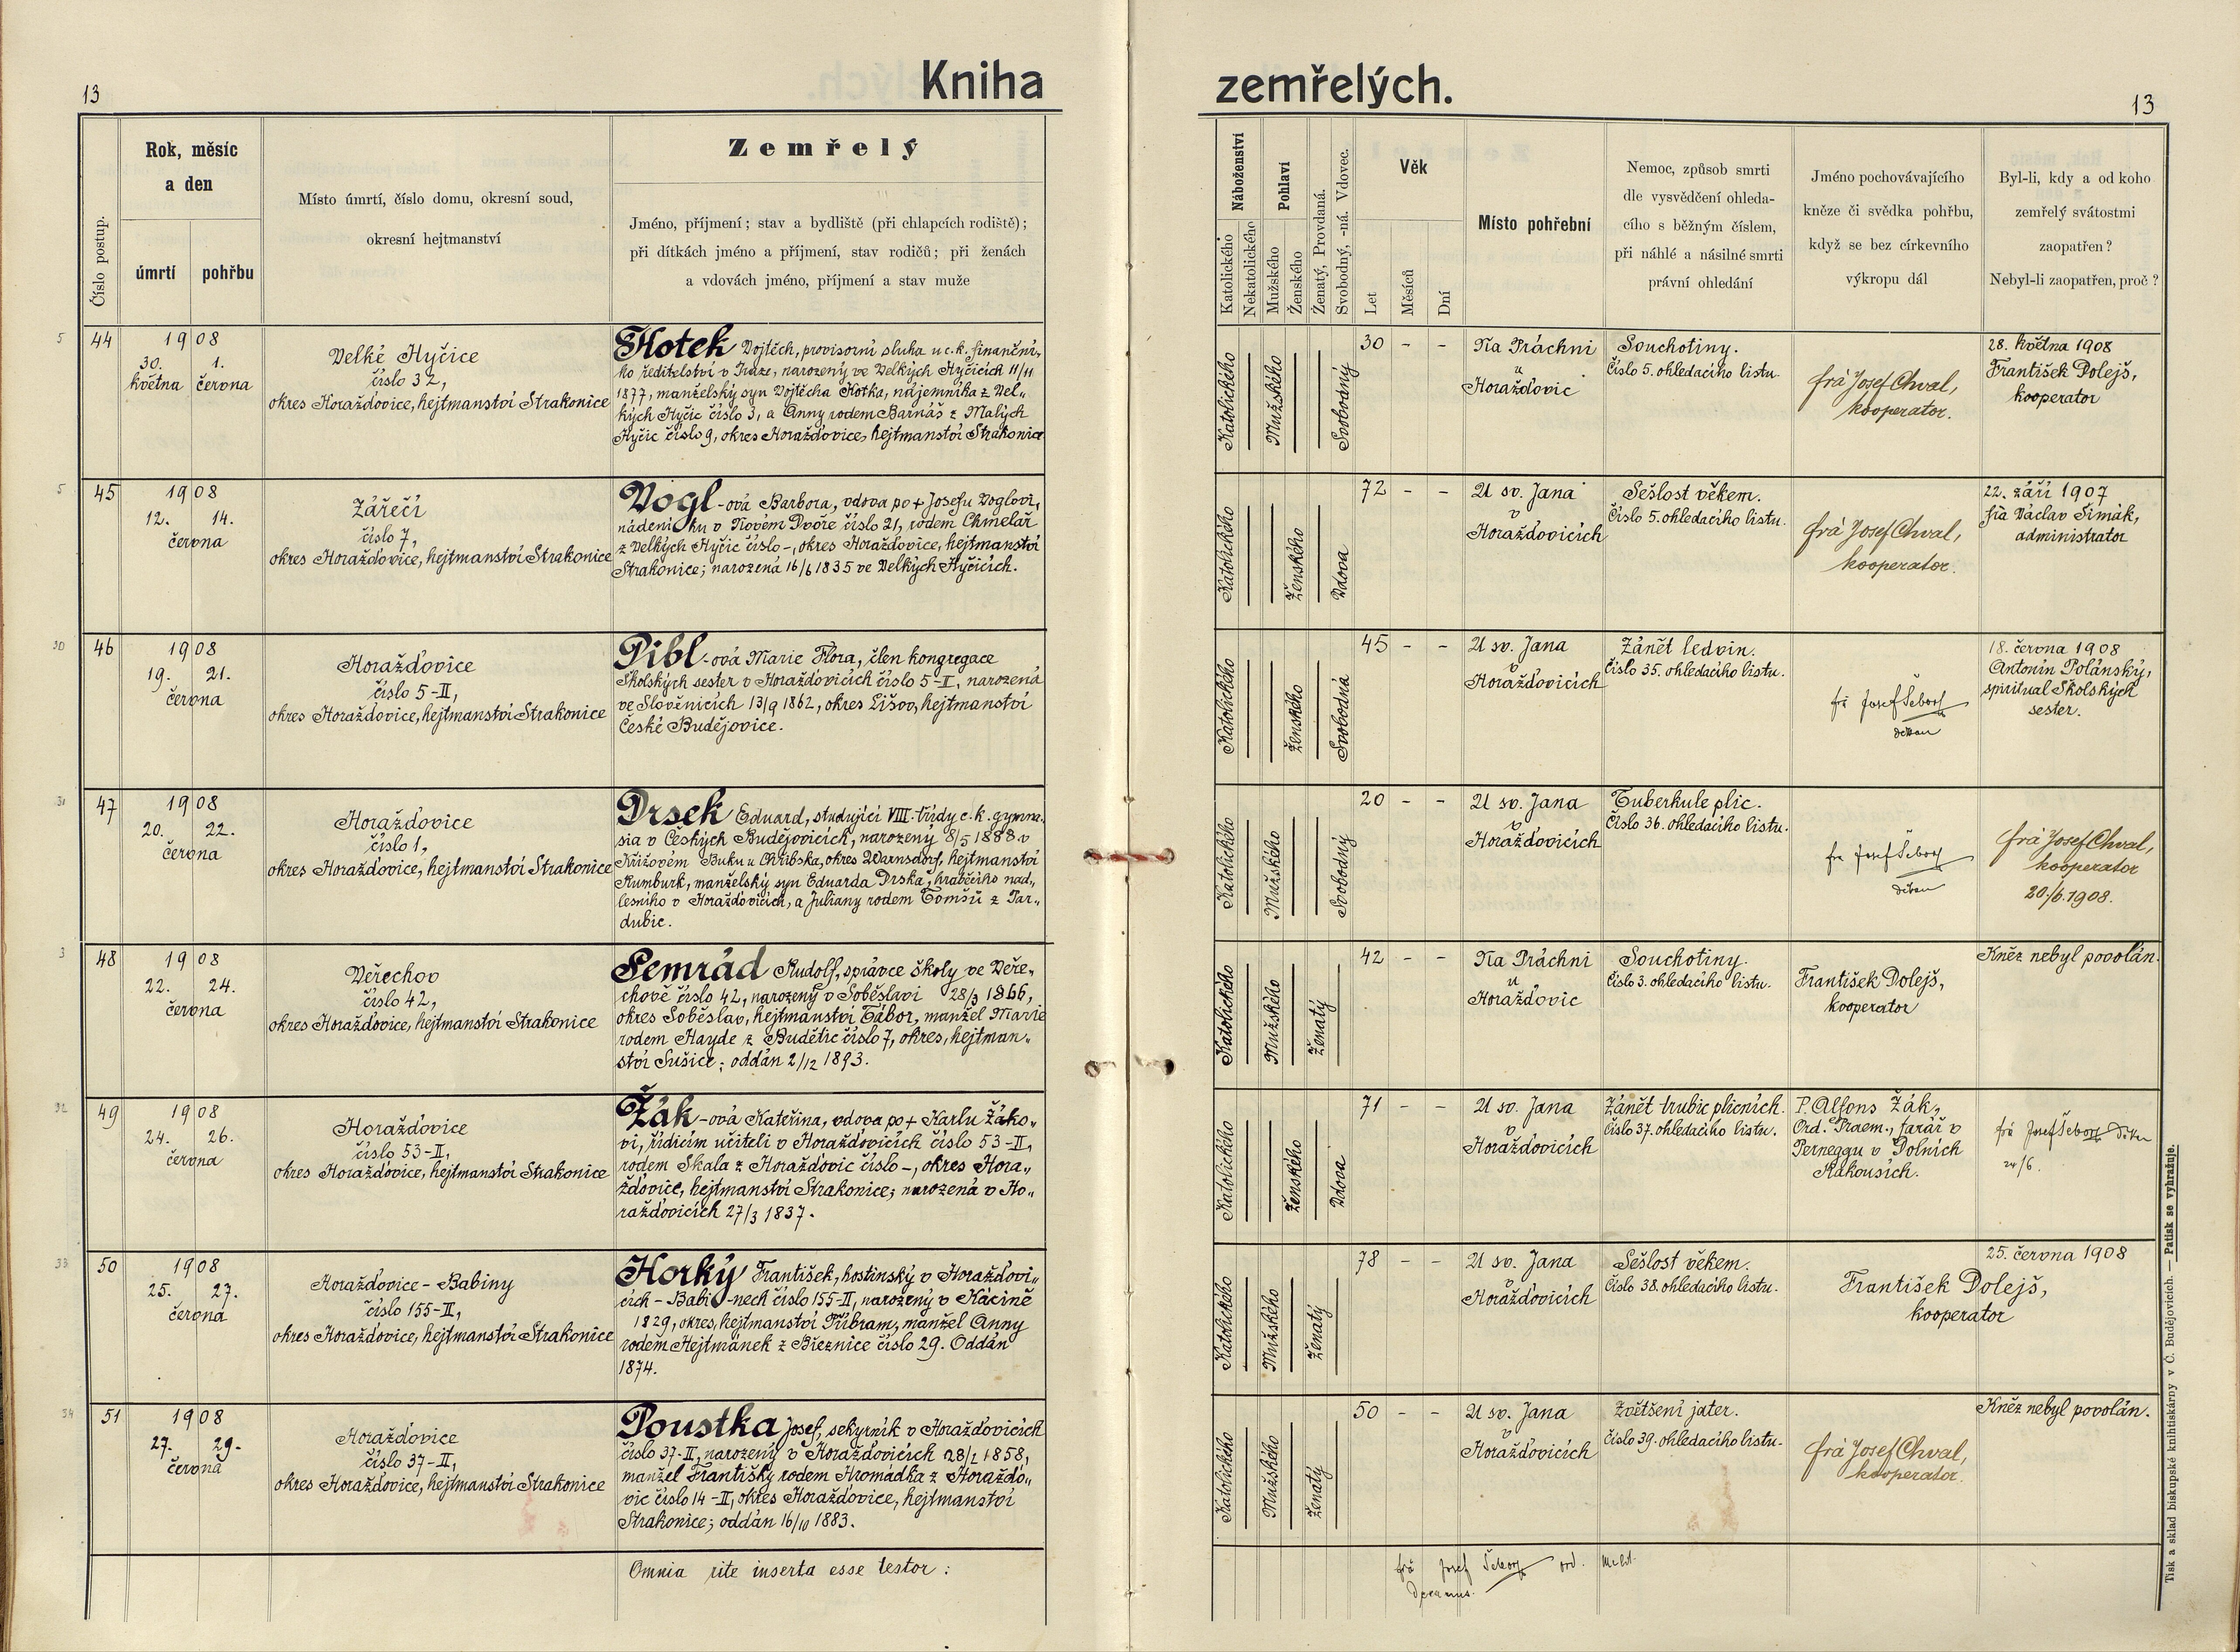 13
Kniha
zemřelých.
13
Číslo postup.
Rok, měsíc
a den
úmrtí
pohřbu
Místo úmrtí, číslo domu, okresní soud,
okresní hejtmanství
Zemřelý
Jméno, příjmení; stav a bydliště (při chlapcích rodiště);
při dítkách jméno a příjmení, stav rodičů; při ženách
a vdovách jméno, příjmení a stav muže
Náboženství
Katolického
Nekatolického
Pohlaví
Mužského
Ženského
Ženatý, Provdaná.
Svobodný, -ná. Vdovec.
Věk
Let
Měsíců
Dní
Místo pohřební
Nemoc, způsob smrti
dle vysvědčení ohleda-
cího s běžným číslem,
při náhlé a násilné smrti
právní ohledání
Jméno pochovávajícího
kněze či svědka pohřbu,
když se bez církevního
výkropu dál
Byl-li, kdy a od koho
zemřelý svátostmi
zaopatřen?
Nebyl-li zaopatřen, proč?
5
44
1908
30. 1.
května června
Velké Hyčice
číslo 32,
okres Horažďovice, hejtmanství Strakonice
Hotek Vojtěch, provisorní sluha u c. k. finanční-
ho ředitelství v Praze, narozený ve Velkých Hyčicích 11/11
1877, manželský syn Vojtěcha Hotka, nájemníka z Vel-
kých Hyčic číslo 3, a Anny rodem Barnáš z Malých
Hyčic číslo 9, okres Horažďovice, hejtmanství Strakonice
Katolického
Mužského
Svobodný
30 - -
Na Práchni
u
Horažďovic
Souchotiny.
Číslo 5. ohledacího listu.
frà Josef Chval,
kooperator.
28. května 1908
František Dolejš,
kooperator
5
45
1908
12. 14.
června
Zářečí
číslo 7,
okres Horažďovice, hejtmanství Strakonice
Vogl-ová Barbora, vdova po + Josefu Voglovi,
nádeníku v Novém Dvoře číslo 21, rodem Chmelař
z Velkých Hyčic číslo -, okres Horažďovice, hejtmanství
Strakonice; narozená 16/6 1835 ve Velkých Hyčicích.
Katolického
Ženského
Vdova
72 - -
U sv. Jana
v
Horažďovicích
Sešlost věkem.
Číslo 5. ohledacího listu.
frà Josef Chval,
kooperator.
22. září 1907
frà Václav Šimák,
administrator
30
46
1908
19. 21.
června
Horažďovice
číslo 5-II,
okres Horažďovice, hejtmanství Strakonice
Pibl-ová Marie Flora, člen kongregace
Školských sester v Horažďovicích číslo 5-II, narozená
ve Slověnicích 13/9 1862, okres Lišov, hejtmanství
České Budějovice.
Katolického
Ženského
Svobodná
45 - -
U sv. Jana
v
Horažďovicích
Zánět ledvin.
Číslo 35. ohledacího listu.
frà Josef Šeborz
děkan
18. června 1908
Antonín Polánský,
spirituál Školských
sester.
31
47
1908
20. 22.
června
Horažďovice
číslo 1,
okres Horažďovice, hejtmanství Strakonice
Drsek Eduard, studující VIII. třídy c. k. gymna-
sia v Českých Budějovicích, narozený 8/5 1888 v
Křížovém Buku u Chřibska, okres Warnsdorf, hejtmanství
Rumburk, manželský syn Eduarda Drska, hraběcího nad-
lesního v Horažďovicích, a Juliany rodem Tomšů z Par-
dubic.
Katolického
Mužského
Svobodný
20 - -
U sv. Jana
v
Horažďovicích
Tuberkule plic.
Číslo 36. ohledacího listu.
frà Josef Šeborz
děkan
frà Josef Chval,
kooperator
20./6. 1908.
3
48
1908
22. 24.
června
Věřechov
číslo 42,
okres Horažďovice, hejtmanství Strakonice
Semrád Rudolf, správce školy ve Věře-
chově číslo 42, narozený v Soběslavi 28/3 1866,
okres Soběslav, hejtmanství Tábor, manžel Marie
rodem Hayde z Budětic číslo 7, okres, hejtman-
ství Sušice; oddán 2/12 1893.
Katolického
Mužského
Ženatý
42 - -
Na Práchni
u
Horažďovic
Souchotiny.
Číslo 3. ohledacího listu.
František Dolejš,
kooperator
Kněz nebyl povolán.
32
49
1908
24. 26.
června
Horažďovice
číslo 53-II,
okres Horažďovice, hejtmanství Strakonice
Žák-ová Kateřina, vdova po + Karlu Žáko-
vi, řídícím učiteli v Horažďovicích číslo 53-II,
rodem Skala z Horažďovic číslo -, okres Hora-
žďovice, hejtmanství Strakonice; narozená v Ho-
ražďovicích 27/3 1837.
Katolického
Ženského
Vdova
71 - -
U sv. Jana
v
Horažďovicích
Zánět trubic plicních.
Číslo 37. ohledacího listu.
P. Alfons Žák,
Ord. Praem., farář v
Perneggu v Dolních
Rakousích.
frà Josef Šeborz děkan
24/6.
33
50
1908
25. 27.
června
Horažďovice - Babiny
číslo 155-II,
okres Horažďovice, hejtmanství Strakonice
Horký František, hostinský v Horažďovi-
cích - Babi-nech číslo 155-II, narozený v Kácině
1829, okres, hejtmanství Příbram, manžel Anny
rodem Hejtmánek z Březnice číslo 29. Oddán
1874.
Katolického
Mužského
Ženatý
78 - -
U sv. Jana
v
Horažďovicích
Sešlost věkem.
Číslo 38. ohledacího listu.
25. června 1908
František Dolejš,
kooperator
34
51
1908
27. 29.
června
Horažďovice
číslo 37-II,
okres Horažďovice, hejtmanství Strakonice
Poustka Josef, sekyrník v Horažďovicích
číslo 37-II, narozený v Horažďovicích 28/1 1858,
manžel Františky rodem Hromádka z Horažďo-
vic číslo 14-II, okres Horažďovice, hejtmanství
Strakonice; oddán 16/10 1883.
Katolického
Mužského
Ženatý
50 - -
U sv. Jana
v
Horažďovicích
Zvětšení jater.
Číslo 39. ohledacího listu.
frà Josef Chval,
kooperator.
Kněz nebyl povolán.
Omnia rite inserta esse testor:
frà Josef Šeborz ord. Melit.
Decanus.
Tisk a sklad biskupské knihtiskárny v Č. Budějovicích. — Patisk se vyhražuje.